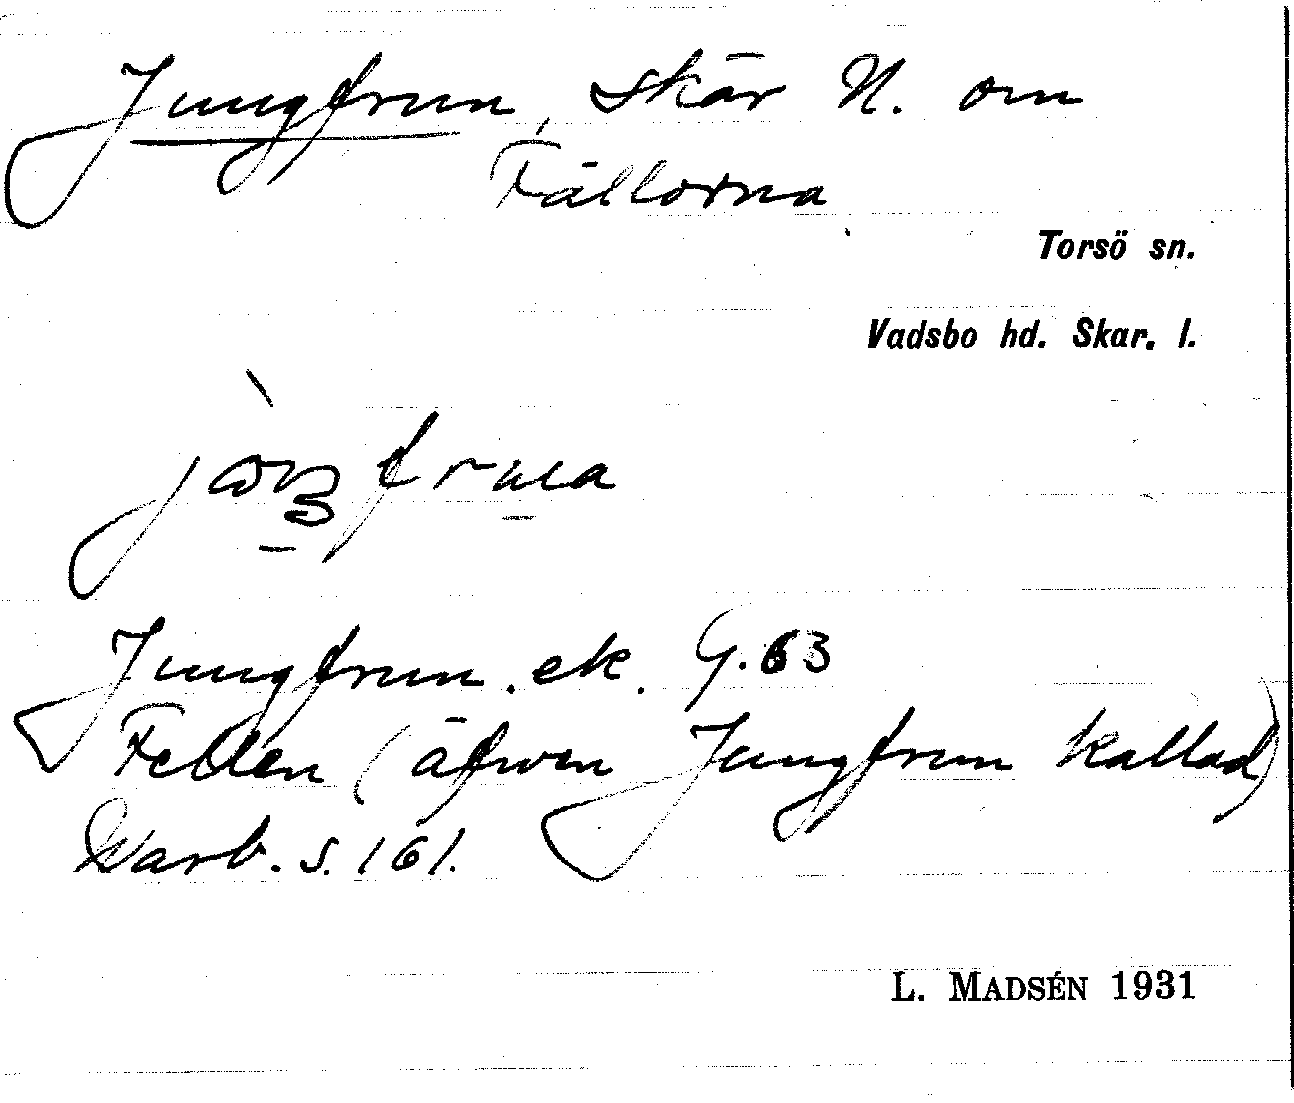 Jungfrun, skär N. om
Fällorna
Torsö sn.
Vadsbo hd. Skar. l.
Jungfrun. ek. G. 63
Fellen (äfven Jungfrun kallad)
Warb. s. 161.
L. MADSÉN 1931